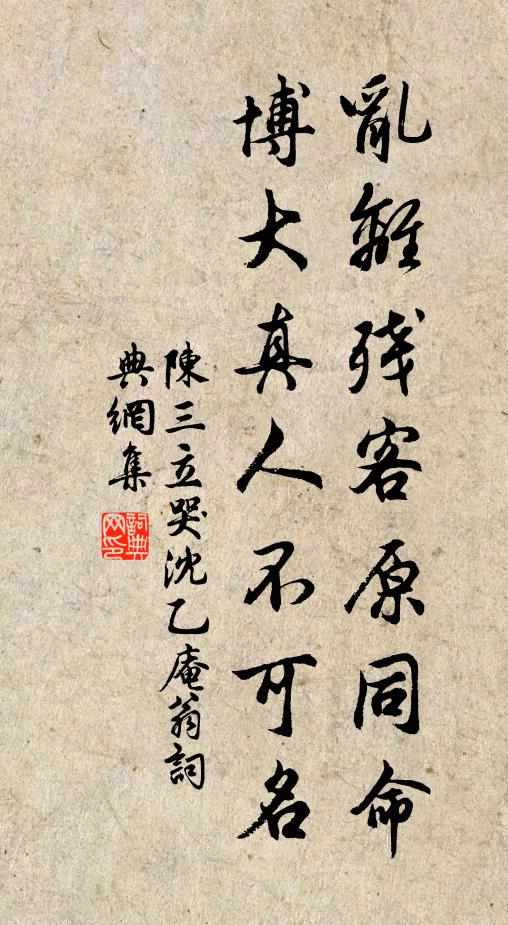 亂離殘客原同命
博大真人不可名
陳三立哭沈乙庵翁詞
典網集
詞典网印